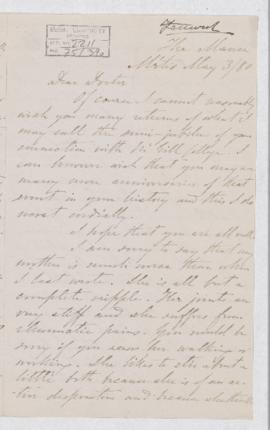 The Manse
Metis May 3/80
Dear Doctor
Of course I cannot reasonably
wish you many returns of what I
may call the semi-jubilee of your
connection with McGill College. I
can however wish that you may see
many more anniversaries of that
event in your history and this I do
most cordially.
I hope that you are all well.
I am sorry to say that my
mother is much worse than when
I last wrote. She is all but a
complete cripple. Her joints are
very stiff and she suffers from
rheumatic pains. You would be
sorry if you saw her walking or
working. She likes to stir about a
little both because she is of an ac-
tive disposition and because she thinks